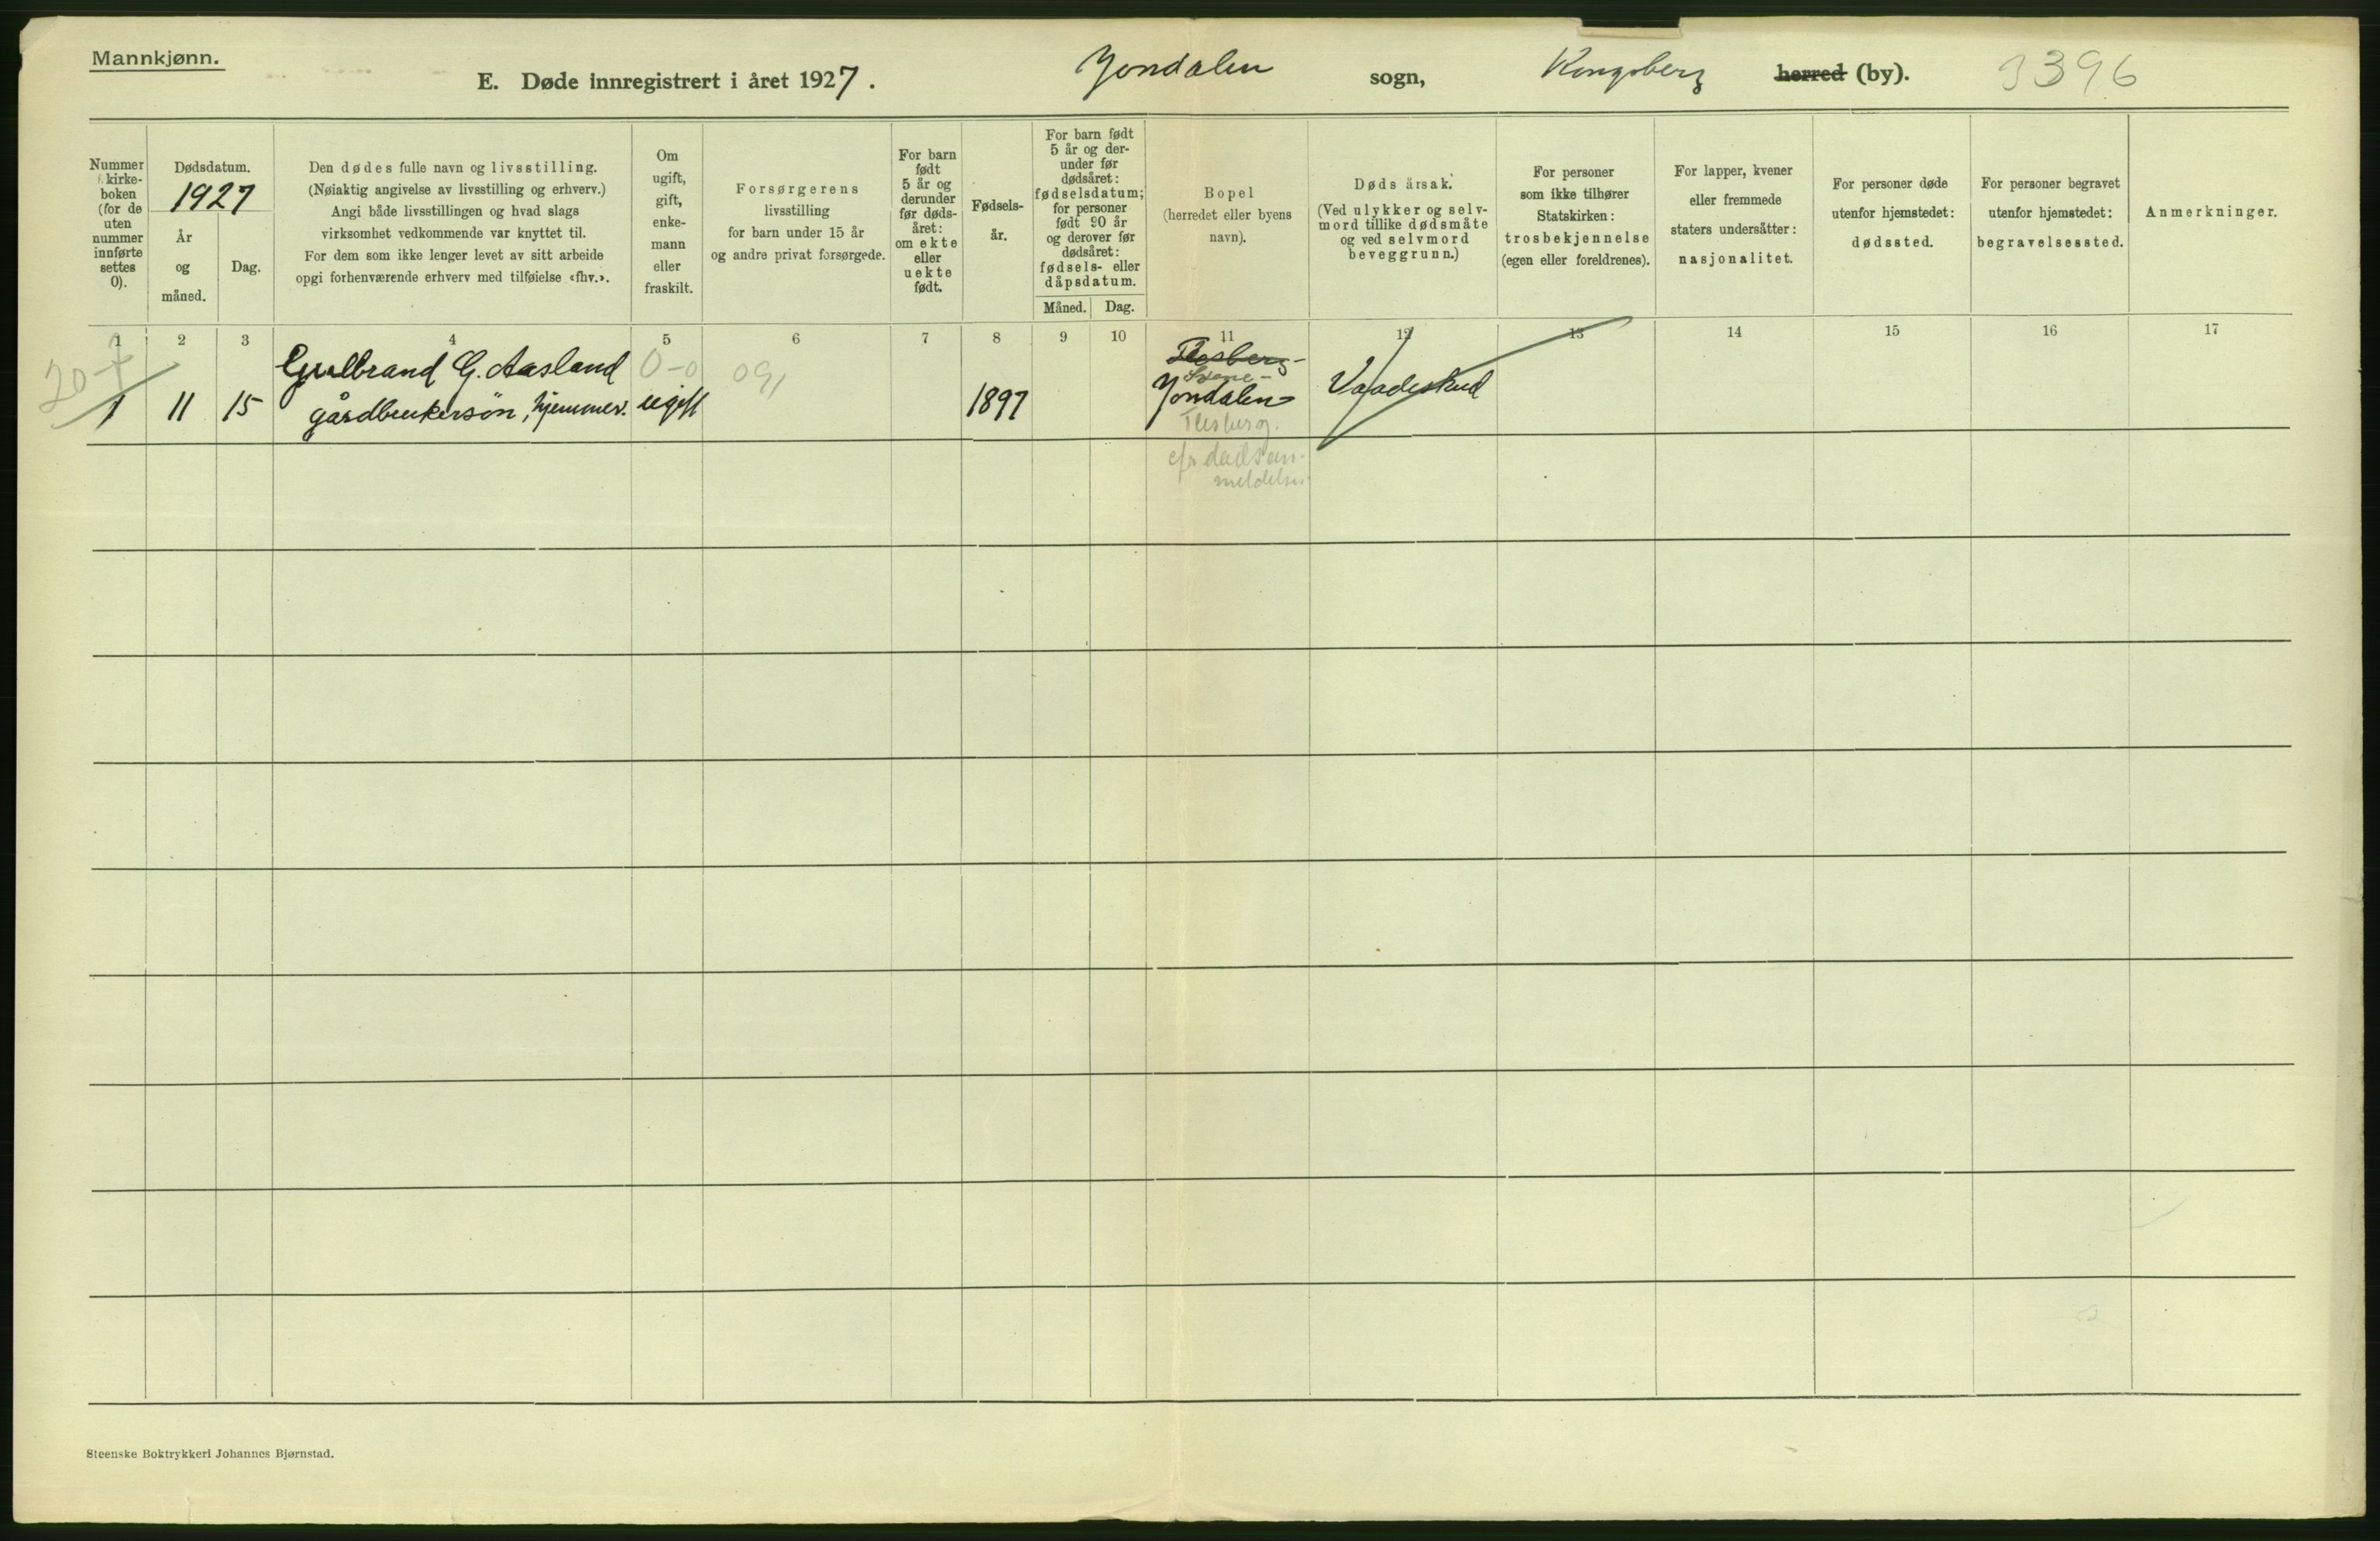 Mannkjønn.
E. Døde innregistrert i året 1927. Jondalen sogn, Kongsberg herred (by). 3396
Nummer
kirke-
boken
(for de
uten
nummer
innførte
settes
0).
Dødsdatum.
1927
År
og
måned.
Dag.
Den dødes fulle navn og livsstilling.
(Nøiaktig angivelse av livsstilling og erhverv.)
Angi både livsstillingen og hvad slags
virksomhet vedkommende var knyttet til.
For dem som ikke lenger levet av sitt arbeide
opgi forhenværende erhverv med tilføielse «fhv.».
Om
ugift,
gift,
enke-
mann
eller
fraskilt.
Forsørgerens
livsstilling
for barn under 15 år
og andre privat forsørgede.
For barn
født
5 år og
derunder
før døds-
året:
om ekte
eller
uekte
født.
Fødsels-
år.
For barn født
5 år og der-
under før
dødsåret:
fødselsdatum;
for personer
født 90 år
og derover før
dødsåret:
fødsels- eller
dåpsdatum.
Måned. Dag.
Bopel
(herredet eller byens
navn).
Dødsårsak.
(Ved ulykker og selv-
mord tillike dødsmåte
og ved selvmord
beveggrunn.)
For personer
som ikke tilhører
Statskirken:
trosbekjennelse
(egen eller foreldrenes).
For lapper, kvener
eller fremmede
staters undersåtter:
nasjonalitet.
For personer døde
utenfor hjemstedet:
dødssted.
For personer begravet
utenfor hjemstedet:
begravelsessted.
Anmerkninger.
1 2 3 4 5 6 7 8 9 10 11 12 13 14 15 16 17
20-7
Gulbrand G. Aasland 0-0 091 Flesberg-
1 11 15 gårdbrukersøn, hjemmev. ugift 1897 Jondalen Vaadeskud
Flesberg.
cfr dødsan-
meldelsen
Steenske Boktrykkeri Johannes Bjørnstad.